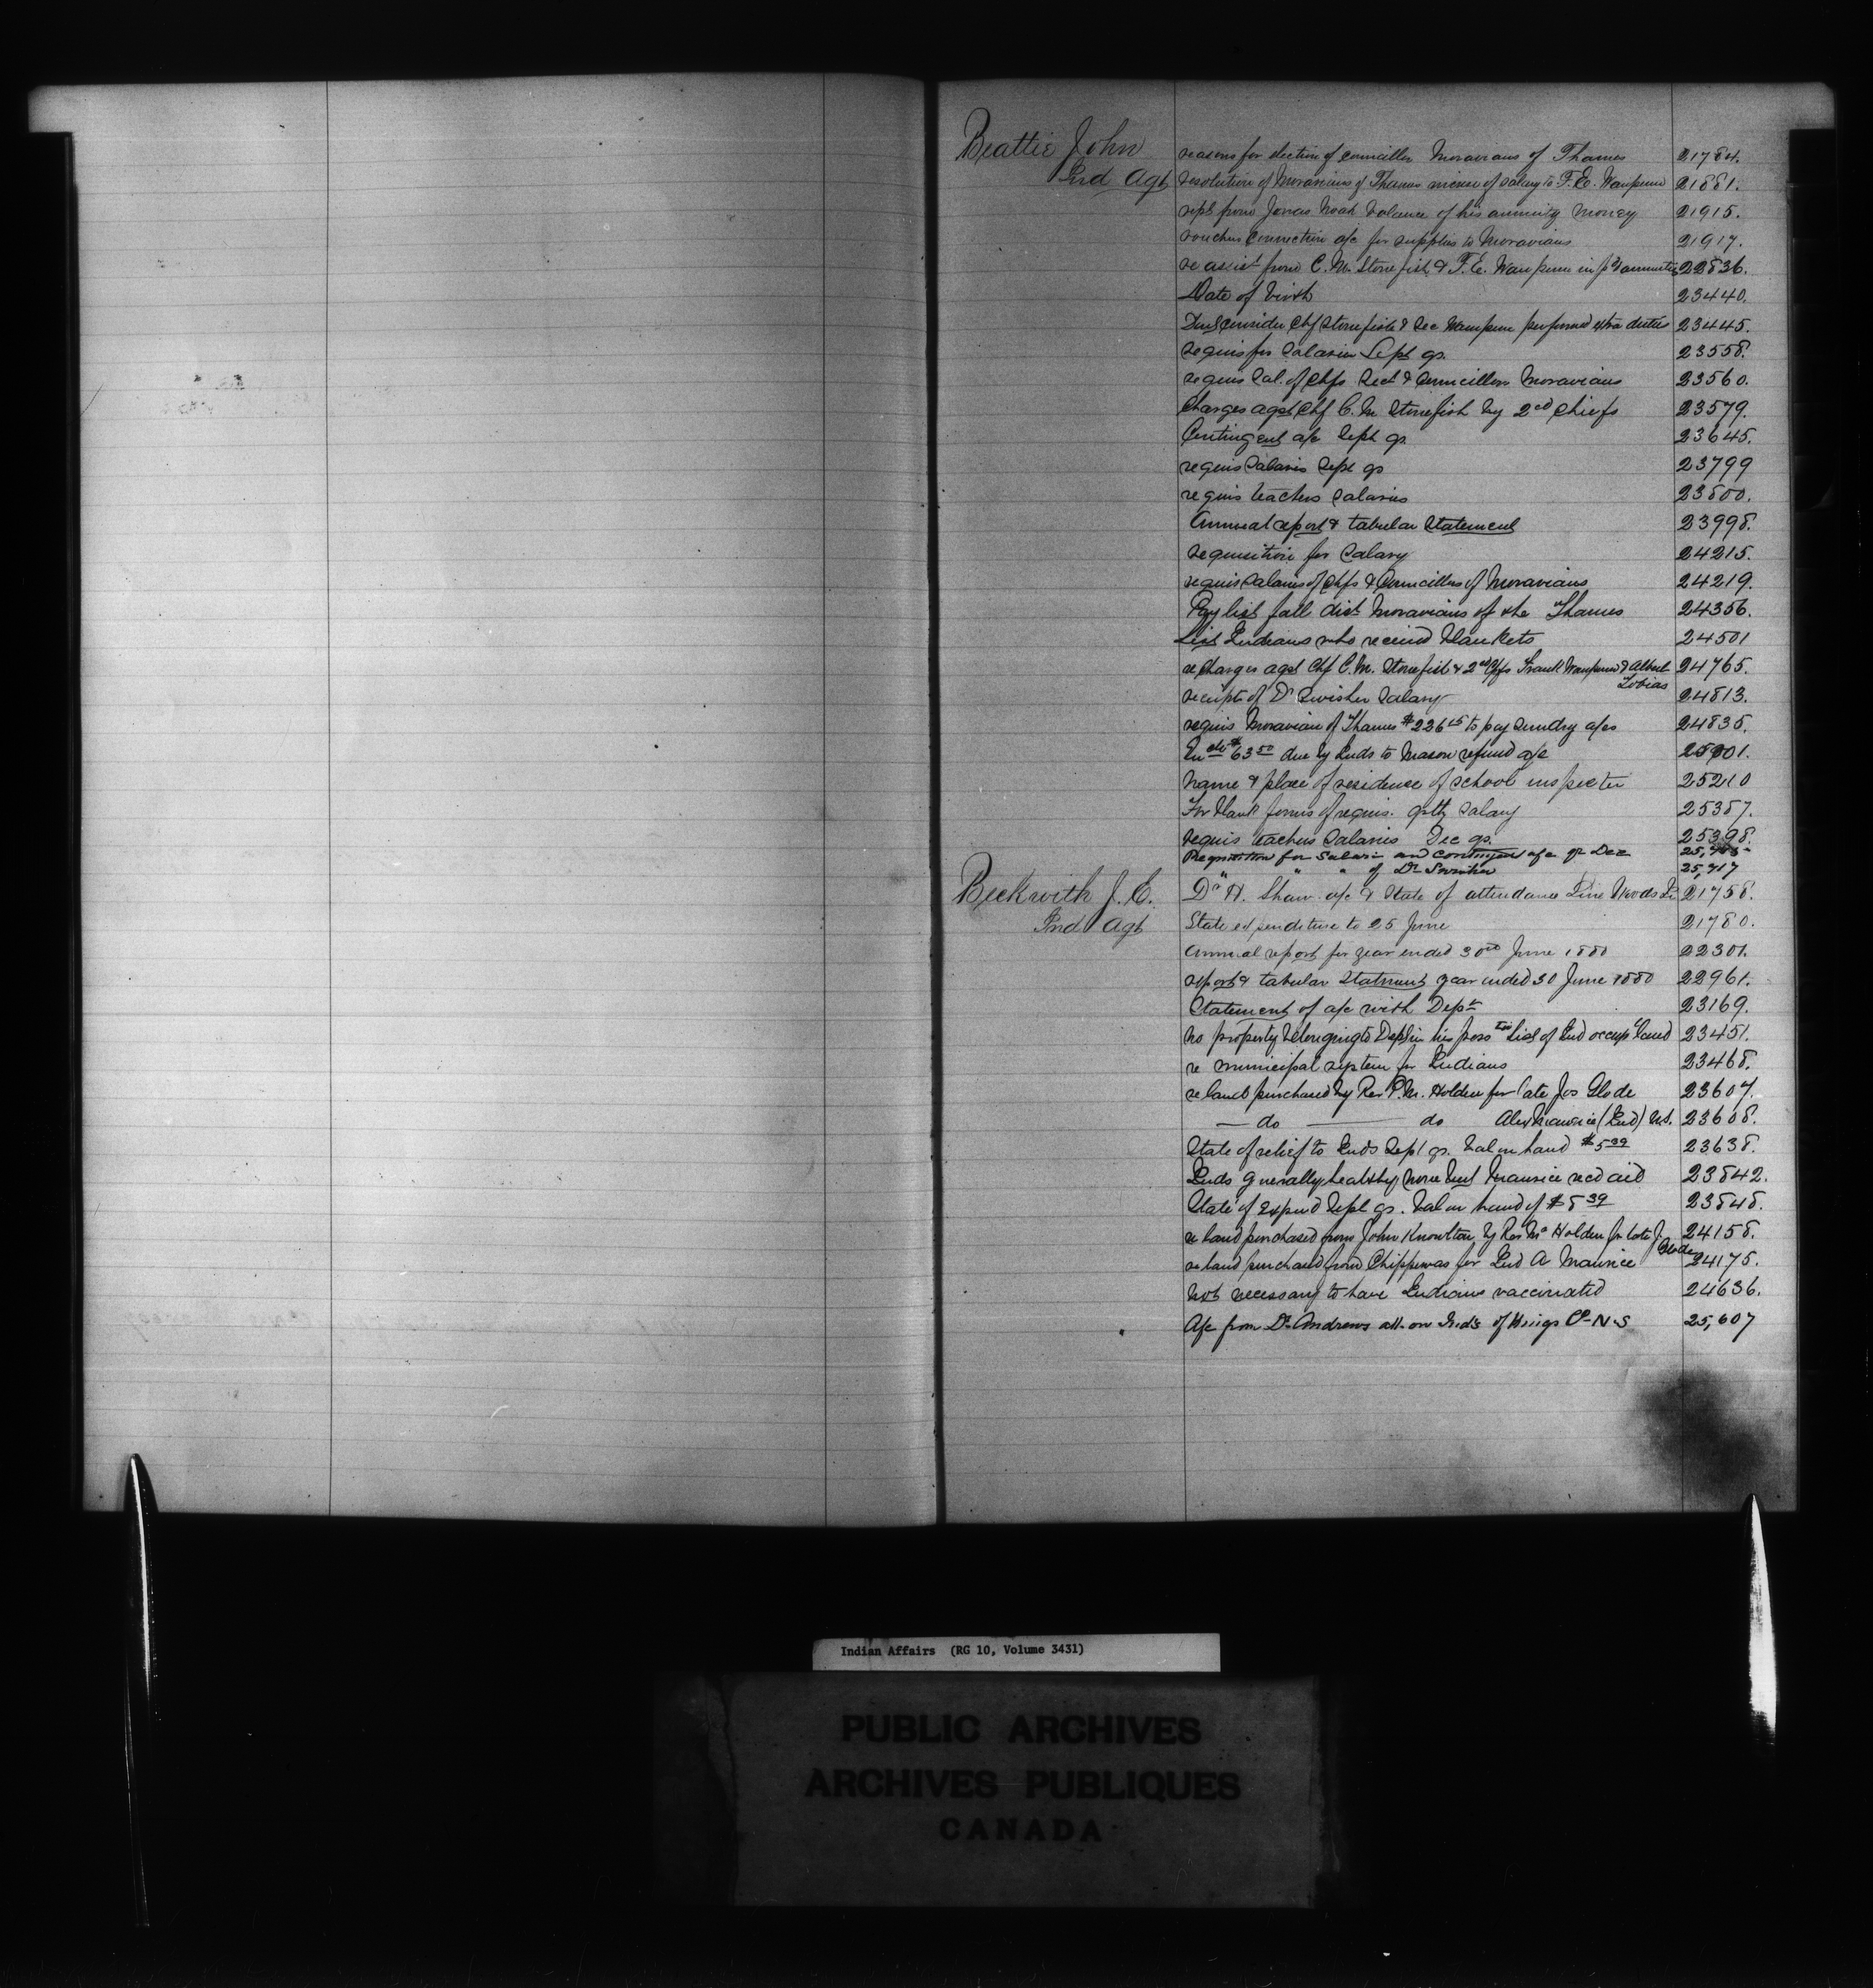 Beattie John
Ind Agt
reasons for election of councillor Moravians of Thames 21784.
resolution of Moravians of Thames increase of salary to F. E. Wampum 21881.
rept from Jonas Noah balance of his annuity money 21915.
vouchers connection a/c for supplies to Moravians 21917.
re assist from C. M. Stonefish & F. E. Wampum in pt annuities 22836.
Date of birth 23440.
Chf Stonefish & Sec Wampum performed extra duties 23445.
requis for Salaries Sept qr. 23558.
requis Sal. of Chfs Sect & Councillors Moravians 23560.
Charges agst Chf C. M. Stonefish by 2nd Chiefs 23579.
Contingent a/c Sept qr. 23645.
requis Salaries Sept qr 23799
requis teachers Salaries 23800.
Annual report & tabular Statement 23998.
requisition for Salary 24215.
requis Salaries of Chfs & Councillors of Moravians 24219.
Pay list fall dist Moravians of the Thames 24356.
List Indians who received blankets 24501
re charges agst Chf C. M. Stonefish & 2nd Chfs Frank Wampum & Albert Tobias 24765.
receipt of Dr Swisher Salary 24813.
requis Moravian of Thames $226 to pay sundry a/cs 24835.
$63 50 due by Inds to Mason refund a/c 25201.
Name & place of residence of school inspector 25210
For blank forms of requis. qrtly Salary 25387.
requis teachers Salaries Dec qr. 25398.
Requisition for Salary and contingent a/c qr Dec
" " " of Dr Swisher 25,717
Beckwith J. E.
Ind Agt
Dr H. Shaw a/c & State of attendance Pine Woods 21758.
State expenditure to 25 June 21780.
Annual report for year ended 30th June 1880 22301.
report & tabular Statement year ended 30 June 1880 22961.
Statement of a/c with Dept 23169.
No property belonging to Dept in his poss List of Ind occup land 23451.
re municipal system for Indians 23468.
re land purchased by Rev P. M. Holden for late Jos Glode 23607.
— do —— do Alex Maurice (Ind) N.S. 23608.
State of relief to Inds Sept qr. bal on hand $5 39 23638.
Inds generally healthy, none but Maurice recd aid 23842.
State of Expend Sept qr. bal on hand of $5 39 23848.
re land purchased from John Knowlton by Rev Mr Holden for late J. Glode 24158.
re land purchased from Chippewas for Ind A Maurice 24175.
Not necessary to have Indians vaccinated 24636.
A/c from Dr Andrews att. on Inds of Kings Co N-S 25,607
Indian Affairs (RG 10, Volume 3431)
PUBLIC ARCHIVES
ARCHIVES PUBLIQUES
CANADA